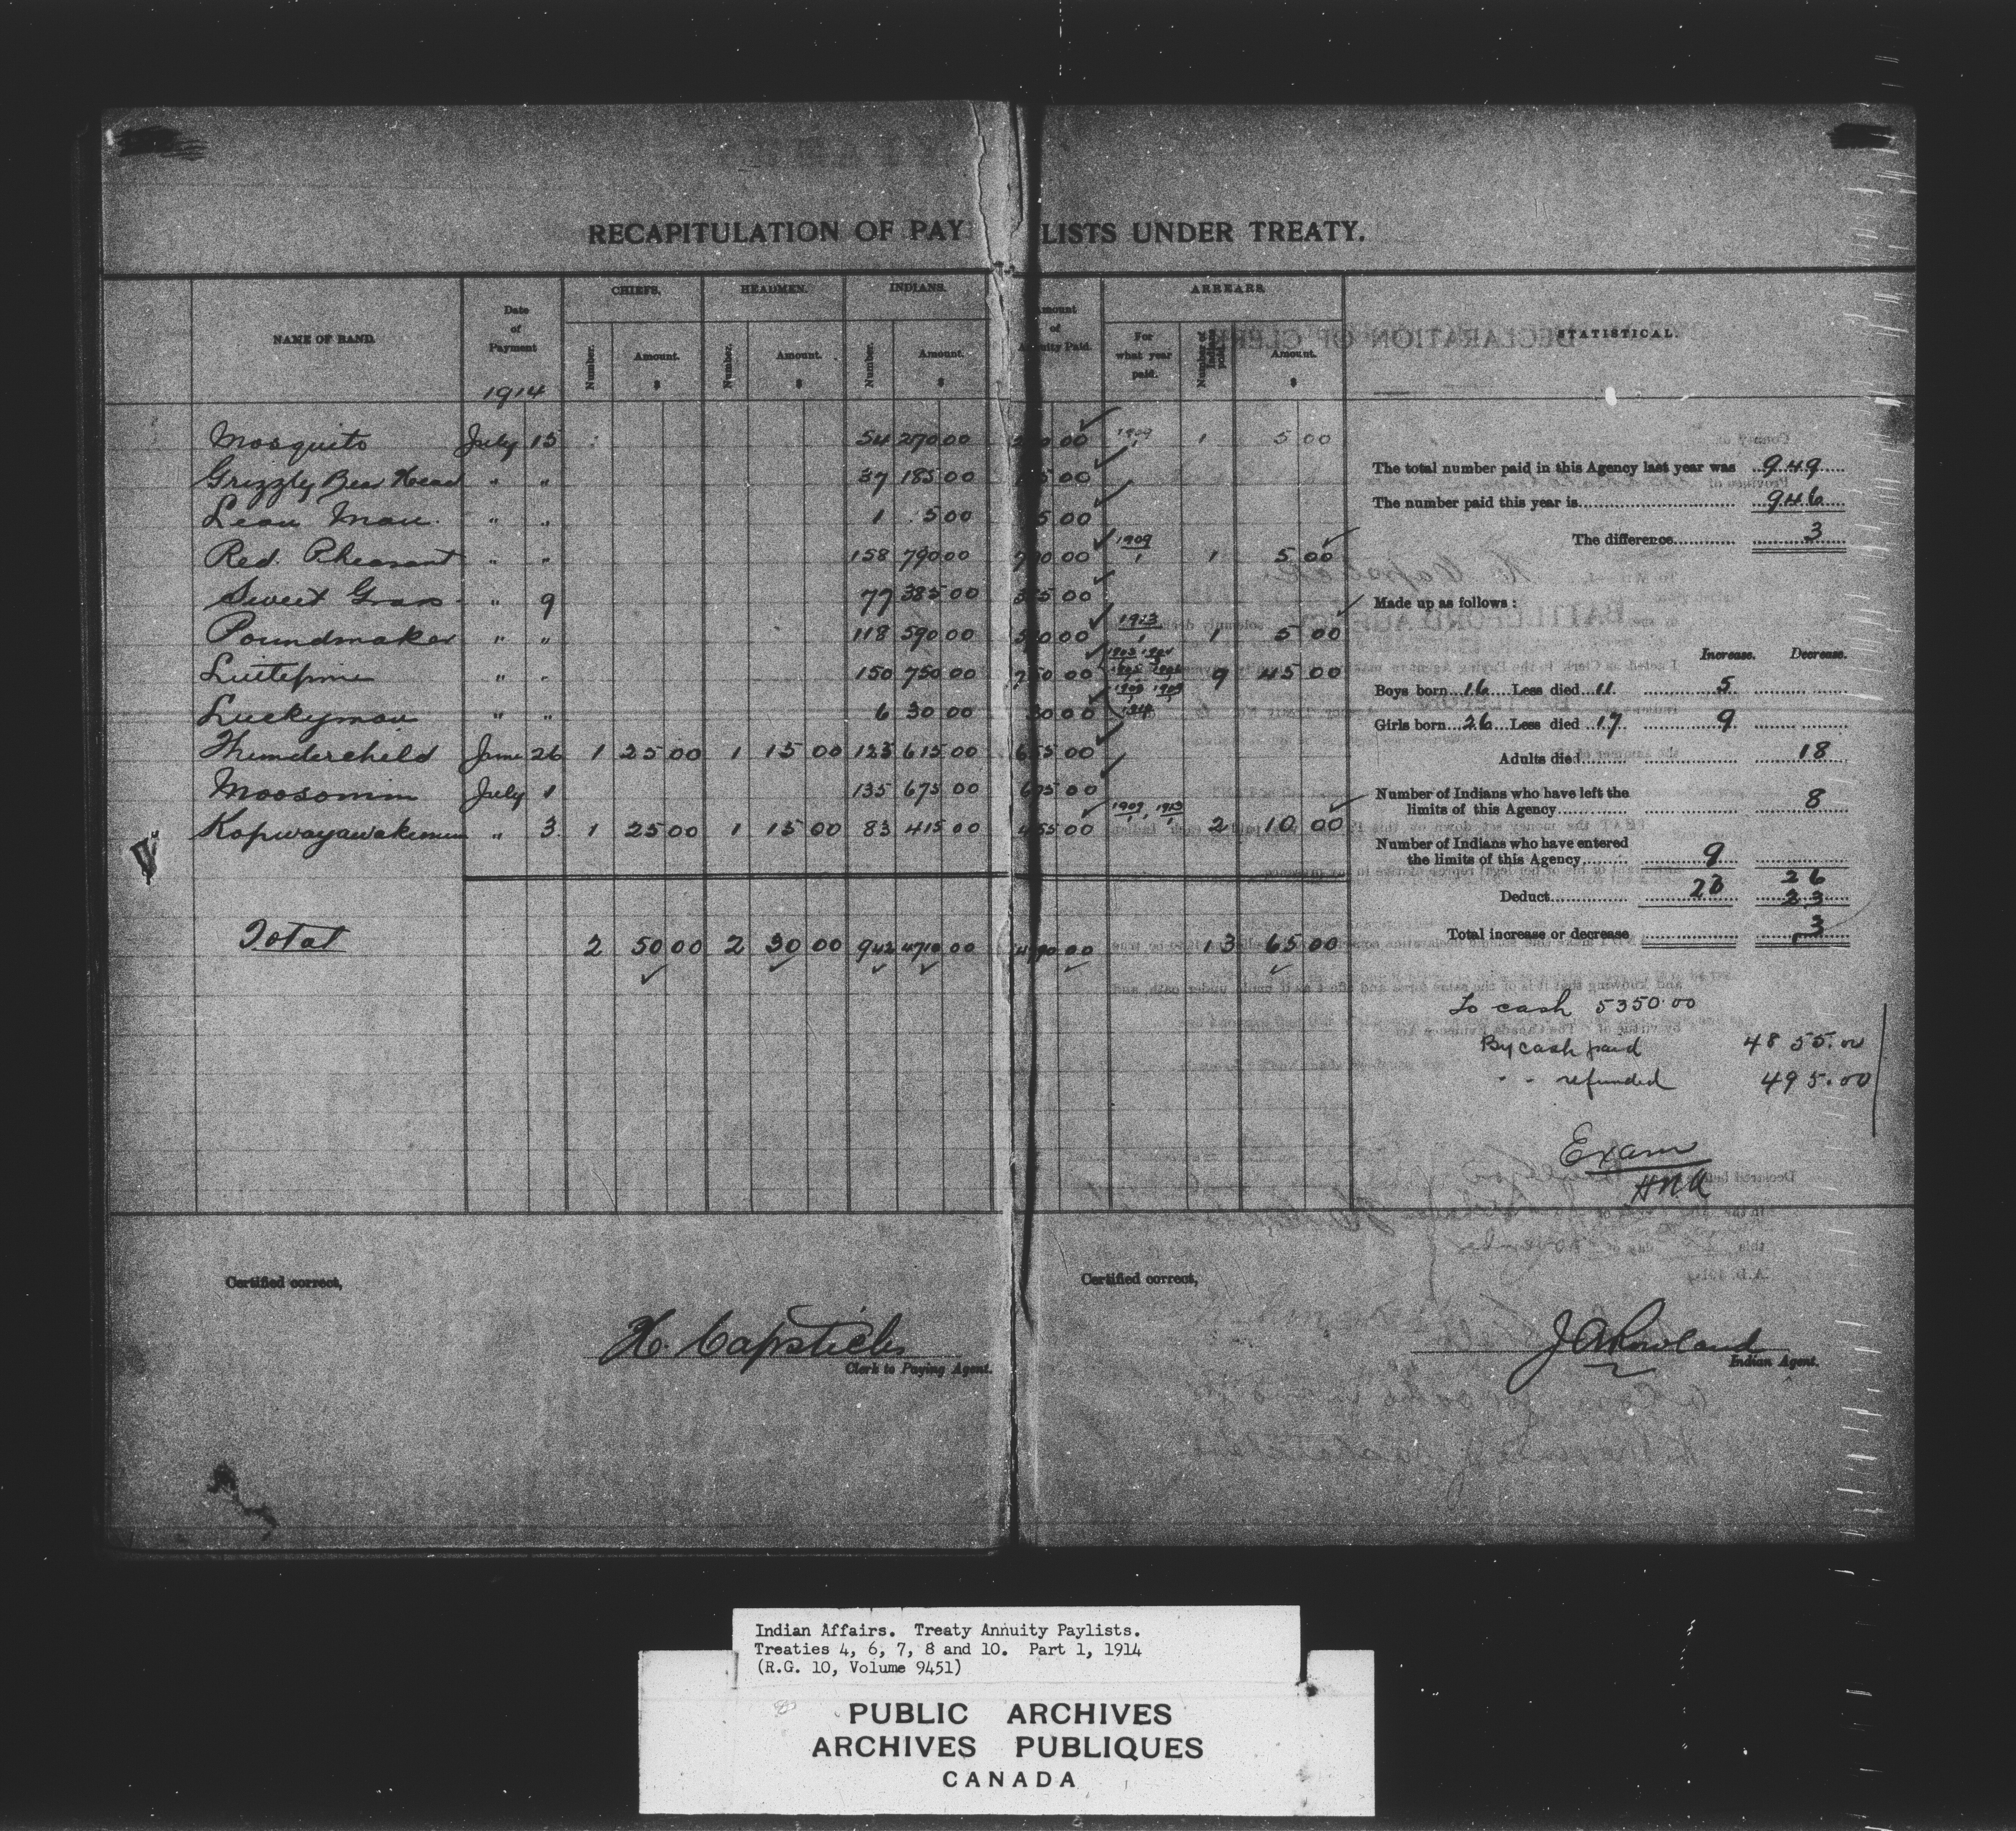 RECAPITULATION OF PAY LISTS UNDER TREATY.
NAME OF BAND. Date of Payment 1914 CHIEFS. Number. Amount. $ HEADMEN. Number. Amount. $ INDIANS. Number. Amount. $ Amount of Annuity Paid. ARREARS. For what year paid. Number of Indians paid. Amount. $ STATISTICAL.
Mosquito July 15 54 270 00 270 00 1909 1 1 5 00
Grizzly Bear Head " " 37 185 00 185 00
Lean Man " " 1 5 00 5 00
Red Pheasant " " 158 790 00 790 00 1909 1 1 5 00
Sweet Grass " 9 77 385 00 385 00
Poundmaker " " 118 590 00 590 00 1913 1 1 5 00
Littlepine " " 150 750 00 750 00 9 45 00
Luckyman " " 6 30 00 30 00
Thunderchild June 26 1 25 00 1 15 00 123 615 00 655 00
Moosomin July 1 135 675 00 675 00
Kopwayawakemum " 3 1 25 00 1 15 00 83 415 00 455 00 1909 1 1913 1 2 10 00
Total 2 50 00 2 30 00 942 4710 00 4790 00 13 65 00
The total number paid in this Agency last year was 949
The number paid this year is 946
The difference 3
Made up as follows:
Increase. Decrease.
Boys born 16 Less died 11 5
Girls born 26 Less died 17 9
Adults died 18
Number of Indians who have left the limits of this Agency 8
Number of Indians who have entered the limits of this Agency 9
23 26
Deduct 23
Total increase or decrease 3
To cash 5350.00
By cash paid 4855.00
" " refunded 495.00
Exam
HNA
Certified correct,
H. Capstick
Clerk to Paying Agent.
Certified correct,
J A Rowland
Indian Agent.
Indian Affairs. Treaty Annuity Paylists.
Treaties 4, 6, 7, 8 and 10. Part 1, 1914
(R.G. 10, Volume 9451)
PUBLIC ARCHIVES
ARCHIVES PUBLIQUES
CANADA